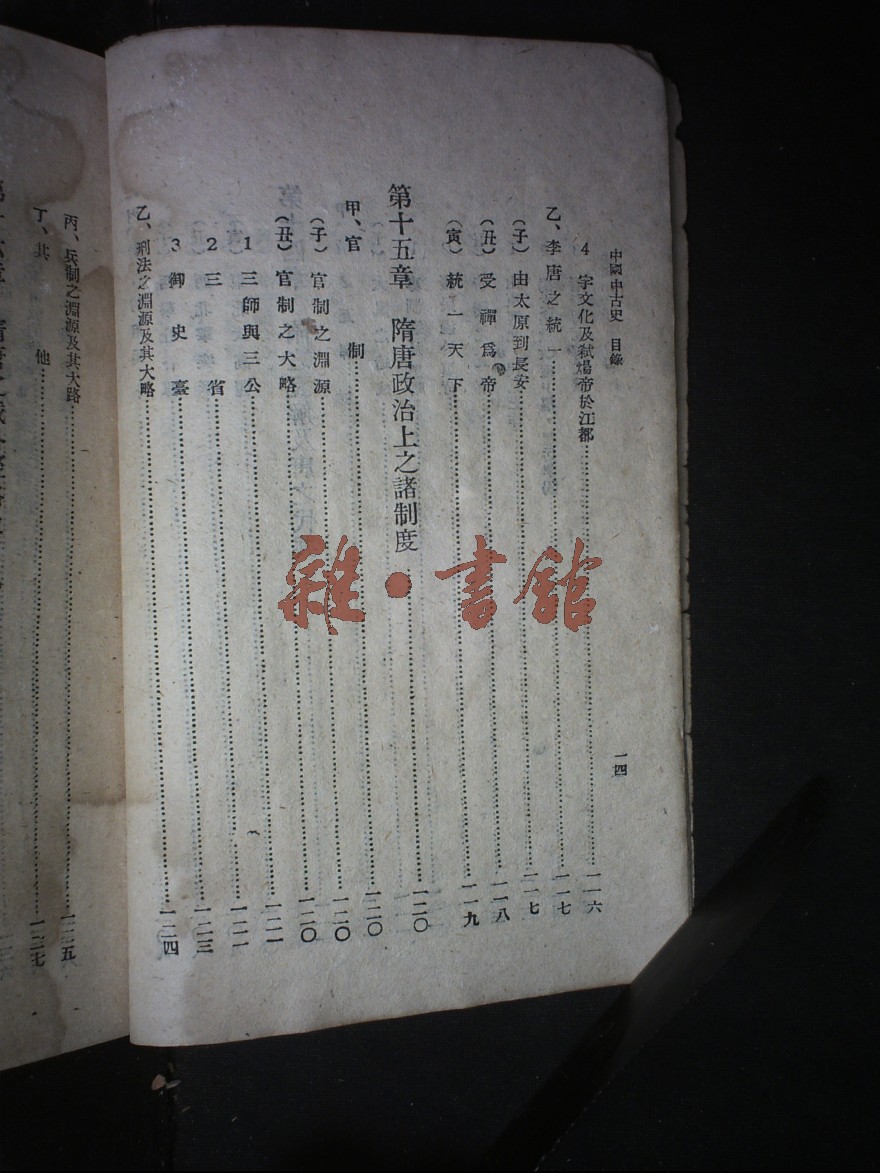 中國中古史 目錄 一四
4 宇文化及弑煬帝於江都……一一六
乙、李唐之統一……一一七
(子)由太原到長安……一一七
(丑)受禪爲帝……一一八
(寅)統一天下……一一九
第十五章 隋唐政治上之諸制度……一二〇
甲、官制……一二〇
(子)官制之淵源……一二〇
(丑)官制之大略……一二〇
1 三師與三公……一二一
2 三省……一二一
3 御史臺……一二三
乙、刑法之淵源及其大略……一二四
丙、兵制之淵源及其大路……一二五
丁、其他……一二七
雜·書館